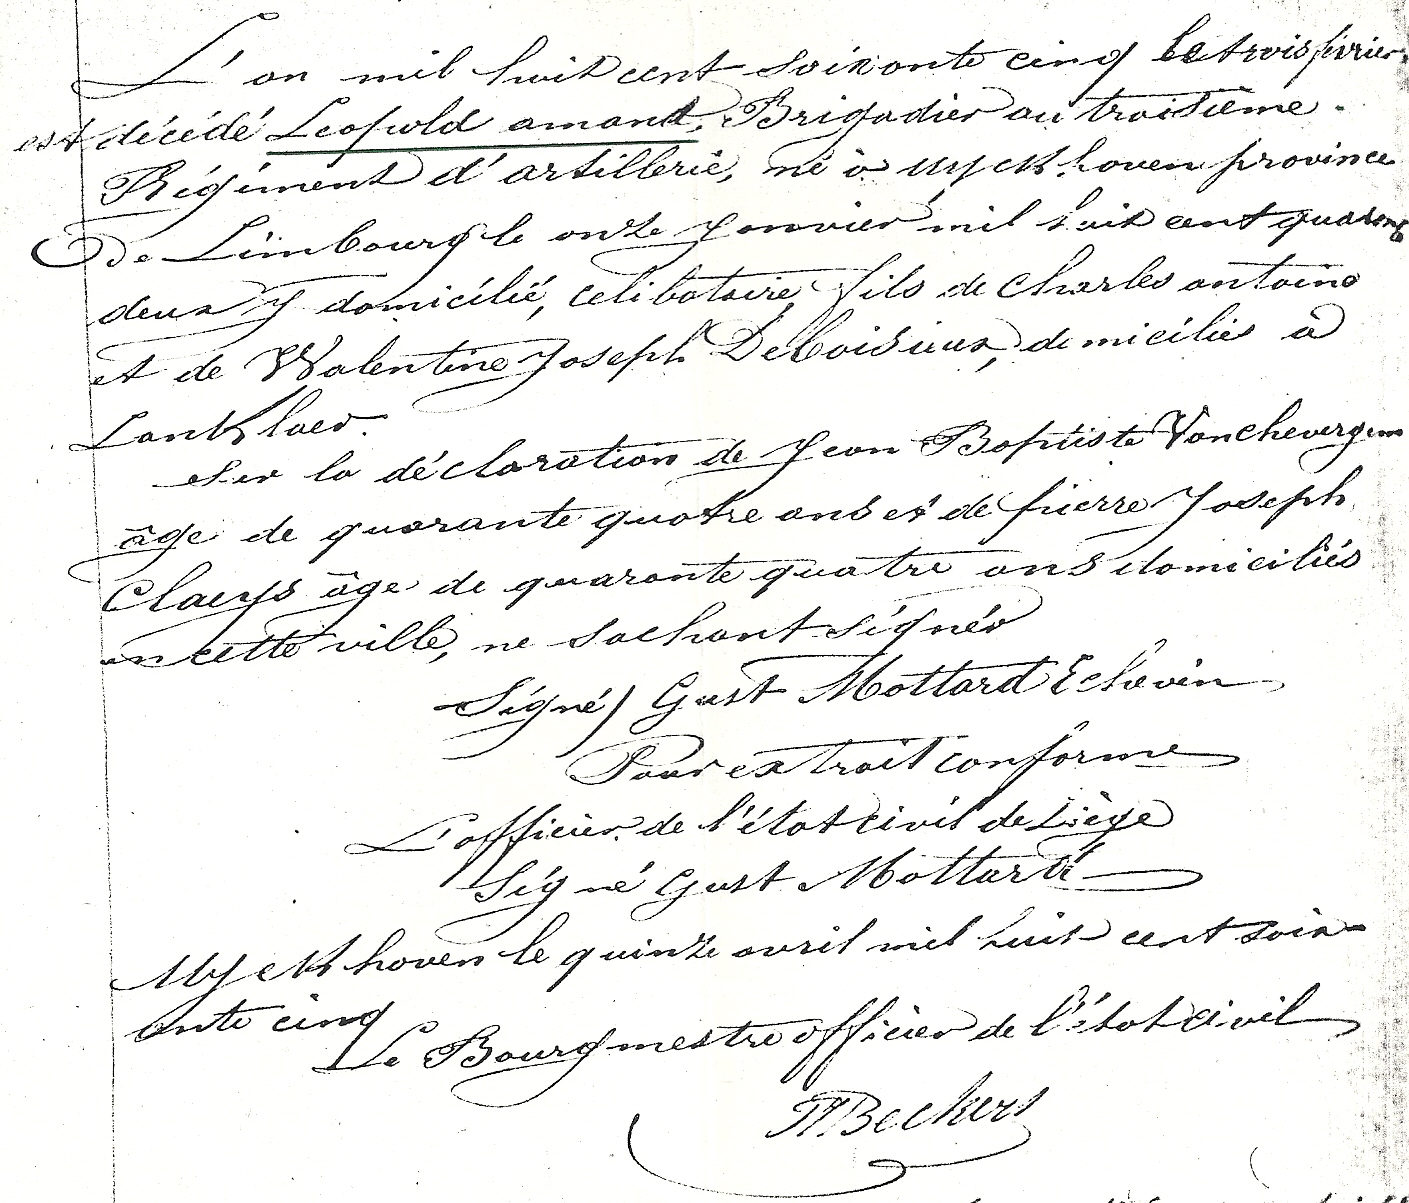 L'an mil huit cent soixante cinq le trois février
est décédé Leopold amand, Brigadier au troisième
Régiment d'artillerie, né à Wyckhoven province
de Limbourg le onze Janvier mil huit cent quarante
deux y domicilié, celibataire, fils de Charles antoine
et de Walentine Joseph Deboisieux, domiciliés a
Lanklaer.
Sur la déclaration de Jean Baptiste Vanchevergem
âge de quarante quatre ans et de pierre Joseph
Claeys âge de quarante quatre ans domiciliés
en cette ville, ne sachant signér
Signé) Gust Mottard Echevin
Pour extrait conforme
L'officier de l'état civil de Liège
Signé Gust Mottard
Wyckhoven le quinze avril mil huit cent soix-
ante cinq
Le Bourgmestre officier de l'état civil
Beckers